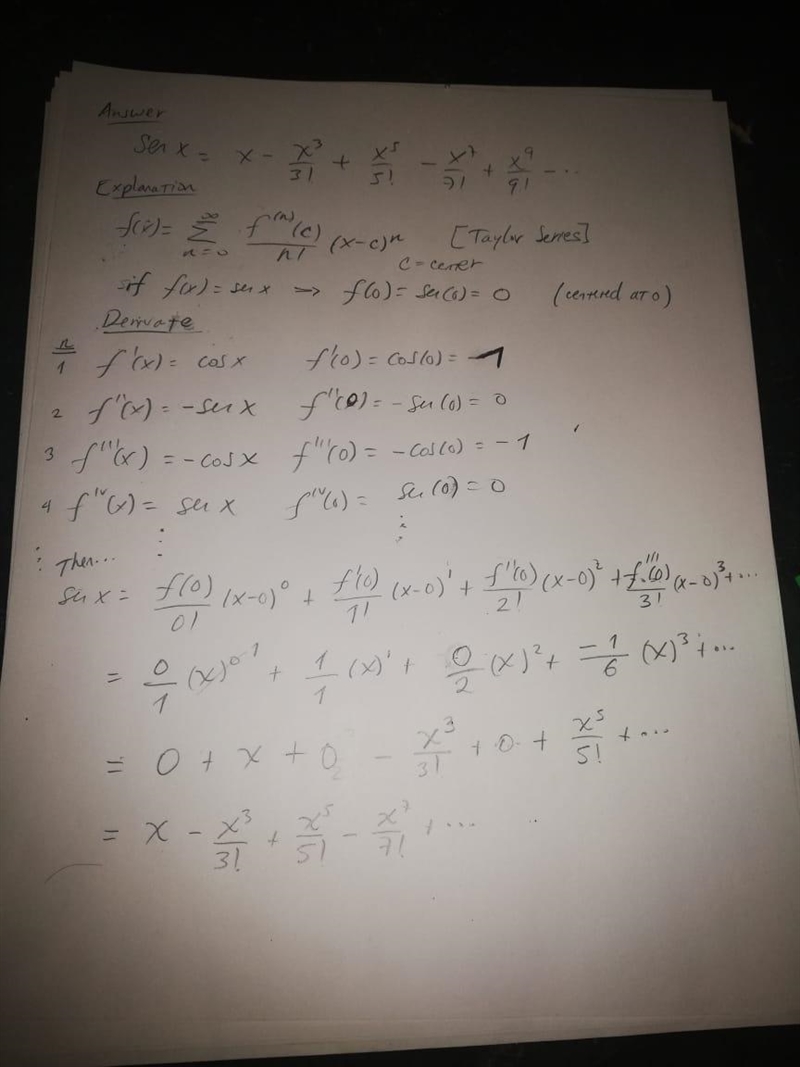 Answer
Sen x = x - x³/3! + x⁵/5! - x⁷/7! + x⁹/9! - ...
Explanation
f(x) = ∞∑n=0 f⁽ⁿ⁾(c)/n! (x-c)ⁿ [Taylor Series]
c = center
if f(x) = sen x → f(0) = sen(0) = 0 (centered at 0)
Derivate
n
1 f'(x) = cos x f'(0) = cos(0) = 1
2 f''(x) = -sen x f''(0) = -sen(0) = 0
3 f'''(x) = -cos x f'''(0) = -cos(0) = -1
4 fⁱᵛ(x) = sen x fⁱᵛ(0) = sen(0) = 0
⋮ ⋮ ⋮
Then...
sen x = f(0)/0! (x-0)⁰ + f'(0)/1! (x-0)¹ + f''(0)/2! (x-0)² + f'''(0)/3! (x-0)³ + ...
= 0/1 (x)⁰ ¹ + 1/1 (x)¹ + 0/2 (x)² + -1/6 (x)³ + ...
= 0 + x + 0 - x³/3! + 0 + x⁵/5! + ...
= x - x³/3! + x⁵/5! - x⁷/7! + ...